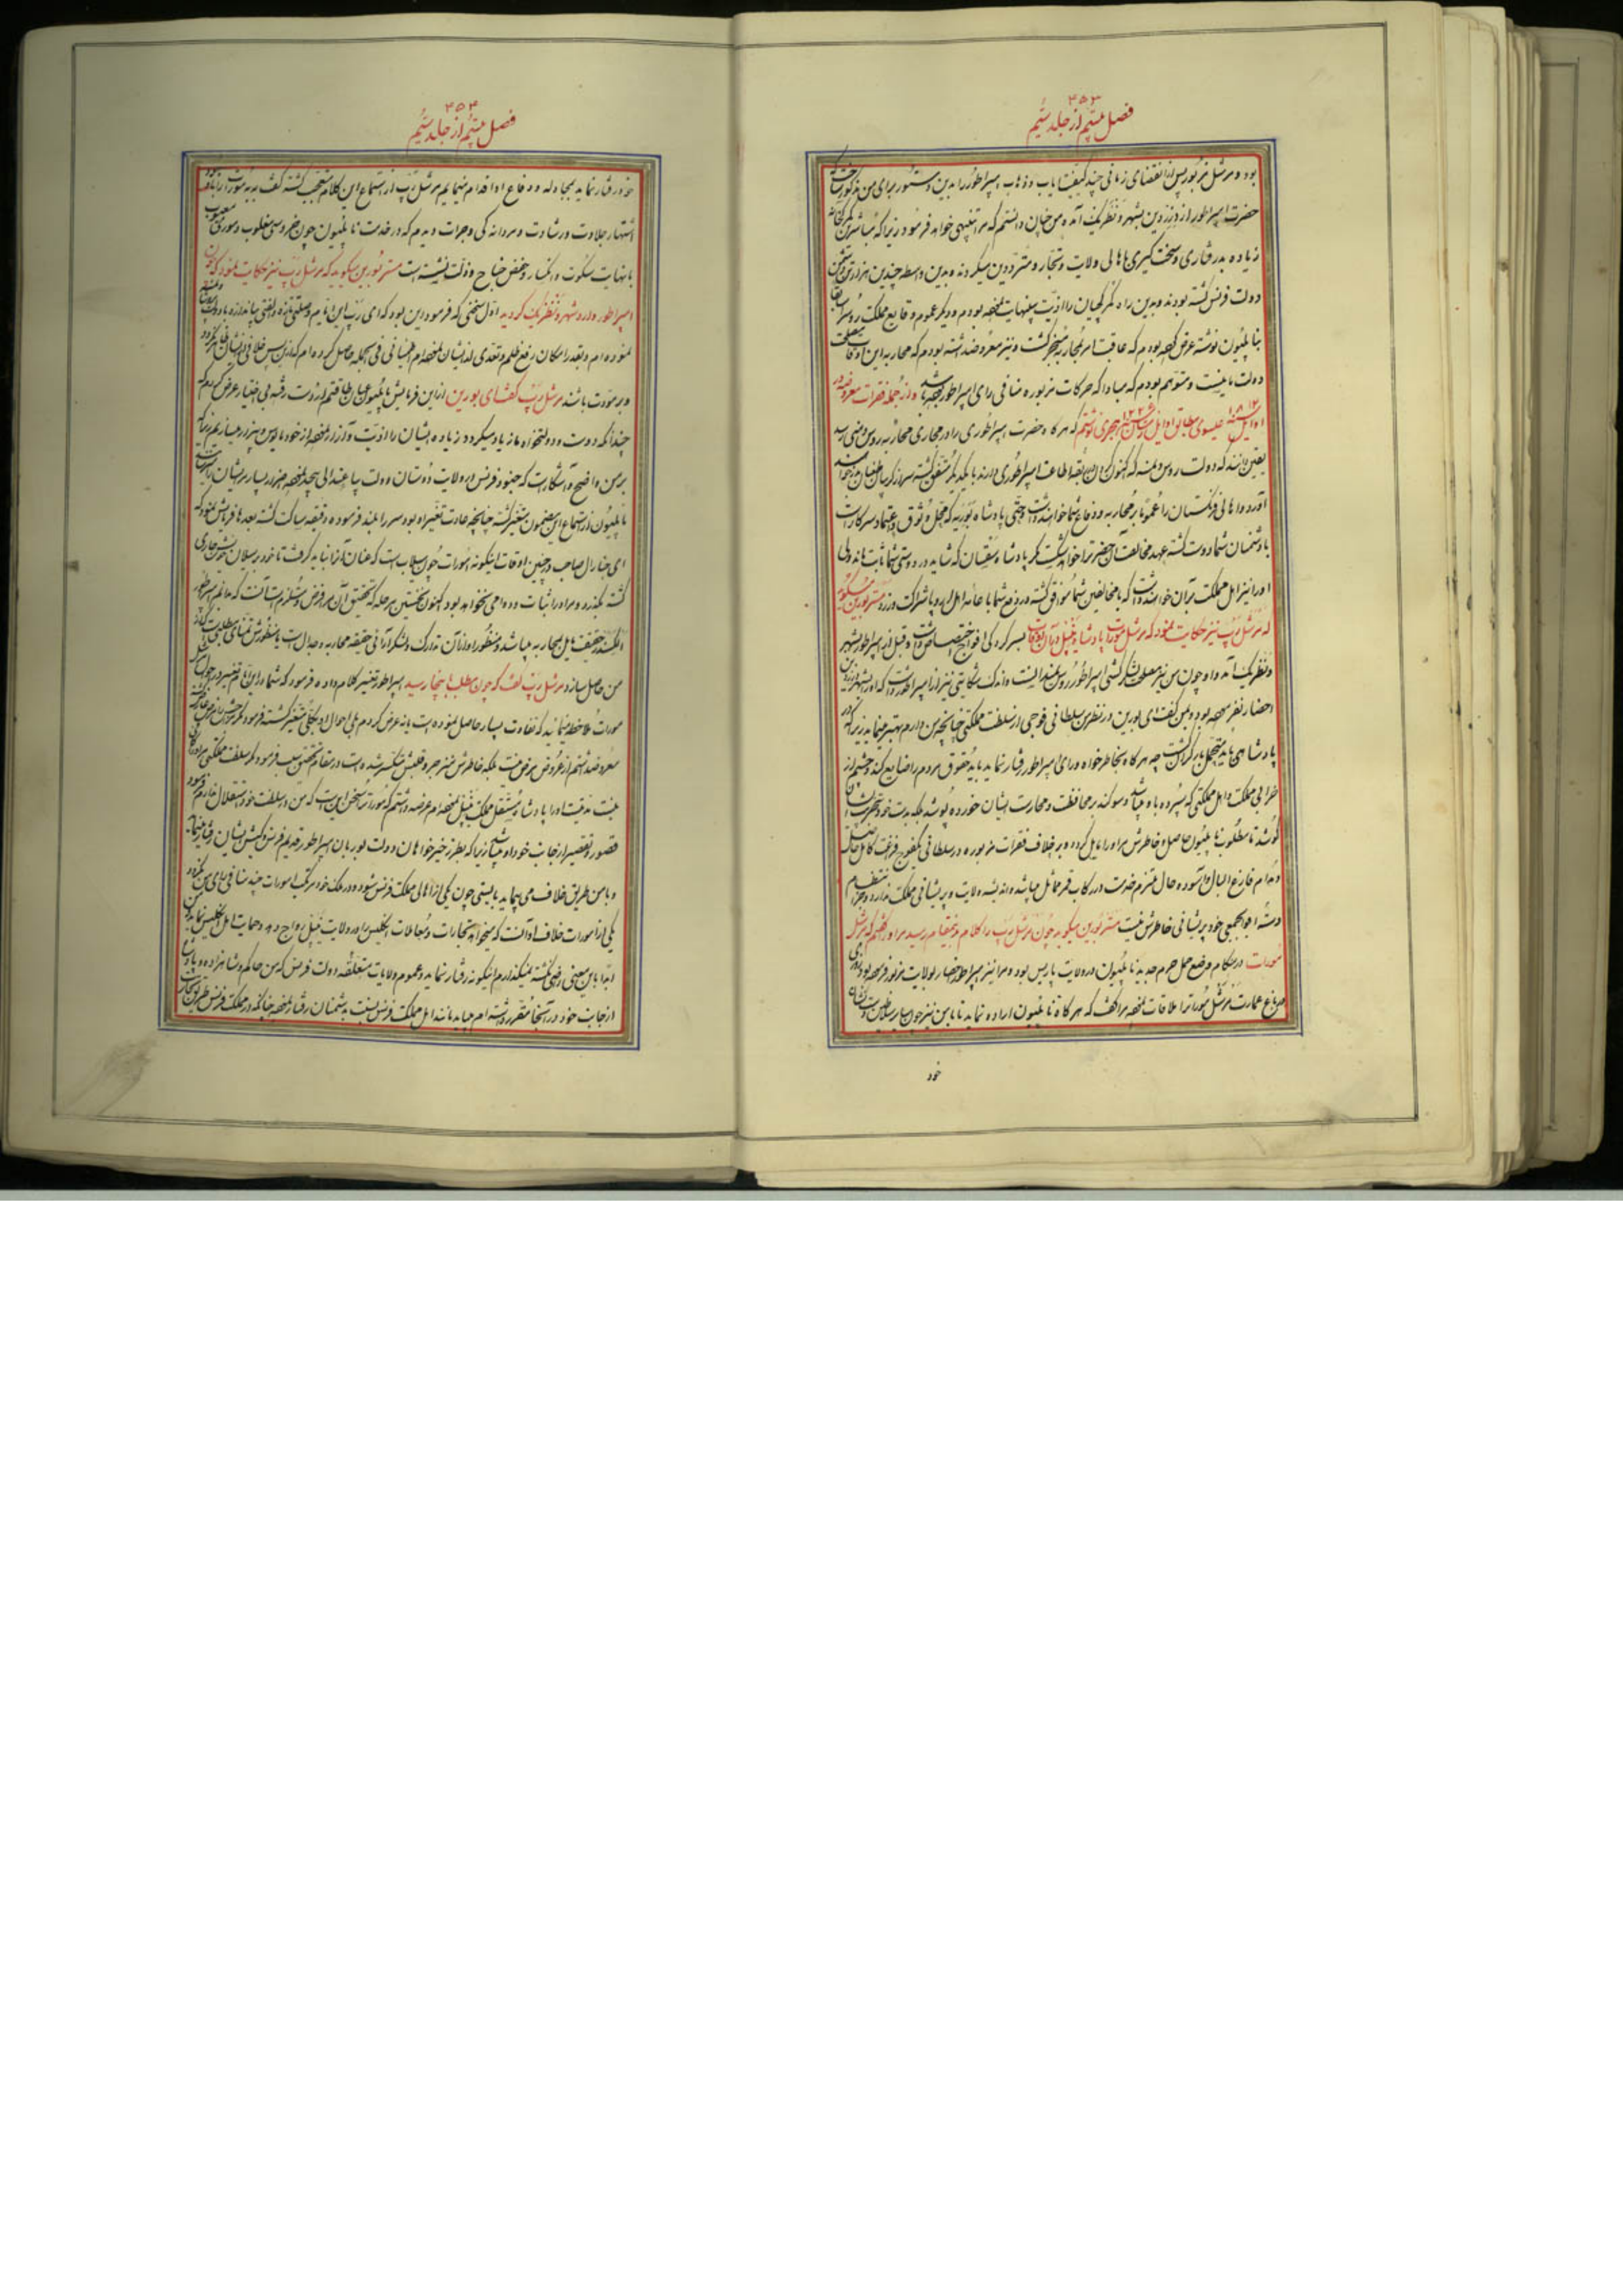 ۳۵۳
فصل بیستم از جلد سیم
بود و مرشل مزبور پس از انقضای زمانی چند کیفیت ایاب و ذهاب امپراطور را بدین دستور برای من مذکور ساخت
حضرت امپراطور از درزدین بشهر دنظریک آمده من چنان دانستم که مرا تنبیهی خواهد فرمود زیرا که مباشرین
زیاده بدرفتاری و سخت گیری با اهالی ولایت و تجار و مترددین میکردند و بدین واسطه چندین هزار تن دشمن
دولت فرنس گشته بودند و بدین راه گمرکچیان را اذیت بینهایت نموده بودم و دیگر عموم وقایع مملکت روس را سابقا
بناپلیون نوشته عرض کرده بودم که عاقبت امر بمحاربه منجر گشت و نیز معروض داشته بودم که محاربه این اوقات مصلحت
دولت ما نیست و متوهم بودم که مبادا که حرکات مزبوره منافی رای امپراطور باشد و از جمله فقرات معروضه در
اوایل ۱۸۱۲ عیسوی مطابق اوایل سال ۱۲۲۶ هجری نوشتم که هرگاه حضرت امپراطوری را در مجاری محاربه روس وهنی رسد
یقین دانند که دولت روس و نمسه که اکنون گردن بقید اطاعت امپراطوری دارند با یکدیگر متفق گشته سر از گریبان طغیان بر خواهند
آورد و اهالی فرنگستان را عموما بر محاربه و دفاع شما خواهند داشت و حتی پادشاه بوریه که محل وثوق و اعتماد سرکار است
با دشمنان شما دوست گشته عهد مخالفت آن حضرت را خواهد شکست مگر پادشاه سقسان که شاید در دوستی شما ثابت ماند ولی
او را نیز اهل مملکت بر آن خواهند داشت که با مخالفین شما موافق گشته در دفع شما با عامه اهل اروپا شراکت ورزد مستر بورین میگوید
که مرشل رپ نیز حکایت نمود که مرشل مورات پادشاه نیپل در آن اوقات بسر کردگی افواج اختصاص داشت و قبل از امپراطور بشهر
دنظریک آمد و او چون من نیز مصلحت لشکرکشی امپراطور را بروس نمیدانست و اندک شکایتی نیز از امپراطور داشت که او را بشهر درزدین
احضار نفرموده بود و بمن گفت ای بورین در نظر من سلطانی فوجی از سلطنت مملکتی چنانچه من دارم بهتر مینماید زیرا که در
پادشاهی باید متحمل بار گران گشت چه هرگاه بخاطرخواه و رای امپراطور رفتار نماید باید حقوق مردم را ضایع کند و چشم از
خرابی مملکت و اهل مملکتی که سپرده باو میباشد و سوگند بر محافظت و حمایت ایشان خورده بپوشد بلکه بدست خود در تخریب ایشان
کوشد تا مطلوب ناپلیون حاصل و خاطرش را مایل گردد و بر خلاف فقرات مزبوره در سلطانی یکفوج فراغت کامل حاصل
و مدام فارغ البال و آسوده حال ملتزم خدمت در رکاب قمر مماثل میباشد و اندیشه ولایت و پریشانی مملکت ندارد و جز انتظام
دسته افواج جمعی خود پریشانی خاطرش نیست مستر بورین میگوید چون مرشل رپ را کلام بدینمقام رسید مرا در گفتیم که مرشل
مورات در هنگام وضع حمل حرم جدید ناپلیون در ولایت پاریس بود و مرا نیز امپراطور احضار بولایت مزبور فرموده بود روزی
در باغ عمارت مرشل مورات را ملاقات نموده مرا گفت که هرگاه ناپلیون اراده نماید تا با من نیز چون سایر سلاطین دست نشان
خود
۳۵۴
فصل بیستم از جلد سیم
خود رفتار نماید بمجادله و دفاع او اقدام مینمایم مرشل رپ از استماع این کلام متعجب گشته گفت
اشتهار جلادت و رشادت و مردانگی و جرات دیدم که در خدمت ناپلیون چون خروسی مغلوب و موری معیوب
با نهایت سکوت و انکسار و خفض جناح و ذلت نشسته است مستر بورین میگوید که مرشل رپ نیز حکایت نمود که چون
امپراطور وارد شهر دنظریک گردید اول سخنی که فرمود این بود که ای رپ این ایام وصلتی تازه و الفتی بی اندازه با دولت نمسه
نموده ام و بقدر امکان رفع ظلم و تعدی از ایشان نموده ام اطمینانی فی الجمله حاصل کرده ام که ازین پس خلافی از ایشان ظاهر نگردد
و بر مودت باشند مرشل رپ گفت ای بورین از این فرمایش ناپلیون عنان طاقتم از دست رفته بی اختیار عرض کردم که
چندانکه دوست و دولتخواه ما زیاد میگردد زیاده ایشان را اذیت و آزار نموده از خود مایوس و بیزار میسازیم زیرا که
بر من واضح و آشکار است که جنود فرنس در ولایت دوستان دولت بی اعتدالی بیحد نموده ضرر بسیار بر ایشان
ناپلیون از استماع این مضمون متغیر گشته چنانچه عادت تغییر او بود سر را بلند فرموده دقیقه ساکت گشته بعدها فرمایش نمود که
ای جنارال صاحب در چنین اوقات اینگونه امورات چون سیلاب است که عنان آنرا نباید گرفت تا خود بر سیلان خویش جاری
گشته بگذرد و مر او را ثبات و دوامی نخواهد بود اکنون نخستین مرحله که تحقیق آن بر ما فرض و مستلزم است آنست که بدانم امپراطور
الکسندر حقیقت مایل بمحاربه میباشد و منظور او از آن تدارک و لشکرآرائی حقیقه محاربه و جدال است یا منظورش تمنای مطلبی است که از
من حاصل سازد مرشل رپ گفت که چون مطلب باینجا رسید امپراطور تغییر کلام داده فرمود که شما در این ایام تغییر در احوال مرشل
مورات ملاحظه مینمائید که تفاوت بسیار حاصل نموده است یا نه عرض کردم بلی احوال او بکلی متغیر گشته فرمود مگر مرضی
معروض داشتم از عروض مرض نیست بلکه خاطرش منزجر و قلبش منکسر شده است در مقام تحقیق سبب فرمود مگر سلطنت مملکتی مر او را کافی
نیست بدینست او را پادشاه مستقل مملکت نیپل نموده ام عرضه داشتم که مورات را سخن این است که من در سلطنت خود استقلال ندارم فرمود
قصور و تقصیر از جانب خود او میباشد زیرا که بطرز خیرخواهان دولت بوربان امپراطور قدیم فرنس و کیش ایشان رفتار مینماید
و با من طریق خلاف می پیماید بایستی چون یکی از اهالی مملکت فرنس شود و در ملک خود مرتکب امورات چند منافی رای من نگردد
یکی از امورات خلاف او آنست که میخواهد تجارات و معاملات انگلیس را در ولایت نیپل رواج دهد و حمایت اهل انگلیس نماید من
ابدا باین معنی راضی نگشته نمیگذارم اینگونه رفتار نماید و عموم ولایات متعلقه دولت فرنس که من حاکم و شاهزاده و پادشاه
از جانب خود در آنجا مقرر داشته ام میباید مانند اهل مملکت فرنس نسبت بدشمنان رفتار نموده چنانکه در مملکت فرنس طریق تجارت